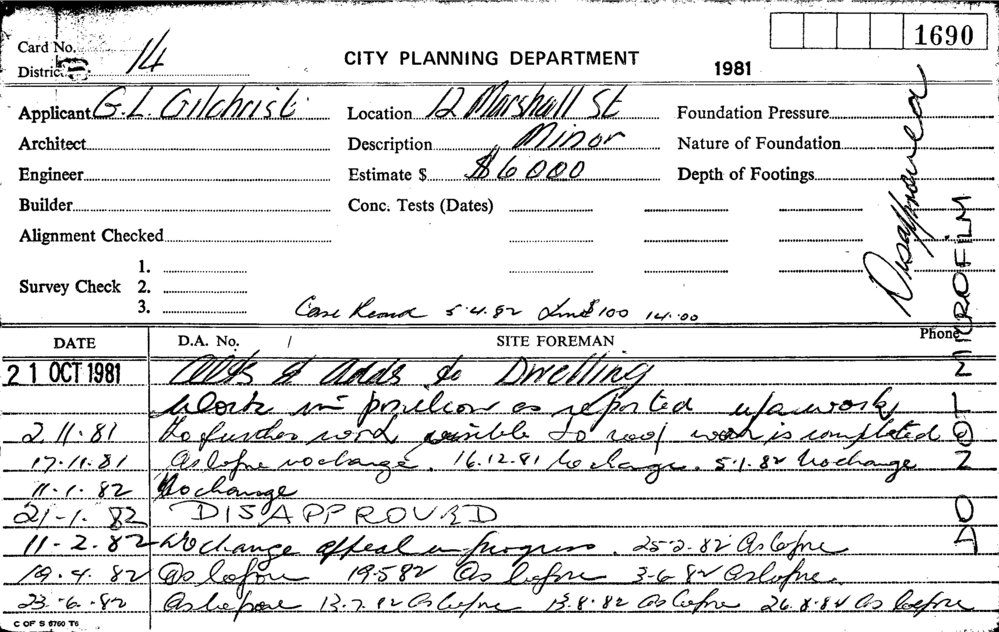 1690
Card No. 14
District
CITY PLANNING DEPARTMENT
1981
Applicant G.L. Gilchrist Location 12 Marshall St Foundation Pressure
Architect Description Minor Nature of Foundation
Engineer Estimate $ $6000 Depth of Footings
Builder Conc. Tests (Dates)
Alignment Checked
Survey Check 1.
2.
3.
5.4.82 $100 14.00
Disapproved
DO NOT MICROFILM
DATE D.A. No. / SITE FOREMAN Phone
21 OCT 1981 Alts & Adds to Dwelling
Work in position as reported u/a work
2.11.81 No further work possible to roof work is completed
17.11.81 As before no change. 16.12.81 No change. 5.1.82 No change
11.1.82 No change
21.1.82 DISAPPROVED
11.2.82 No change appeal in progress. 25.2.82 As before
19.4.82 As before 19.5.82 As before 3.6.82 As before.
23.6.82 As before 13.7.82 As before 13.8.82 As before 26.8.82 As before
C OF S 6760 T6